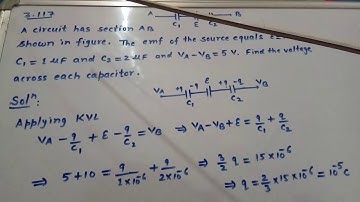 3.117
A B
C₁ E C₂
A circuit has section AB
Shown in figure. The emf of the source equals E=
C₁ = 1 μF and C₂ = 2 μF and VA-VB = 5 V. Find the voltage
across each capacitor.
Solⁿ:
VA +q -q E +q -q VB
C₁ C₂
Applying KVL
VA - q/C₁ + E - q/C₂ = VB ⇒ VA-VB+E = q/C₁ + q/C₂
⇒ 5+10 = q/1×10⁻⁶ + q/2×10⁻⁶ ⇒ 3/2 q = 15×10⁻⁶
⇒ q = 2/3 ×15×10⁻⁶ = 10⁻⁵C